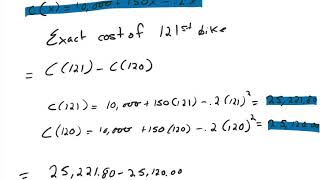 C(x) = 10,000 + 150x - .2x
Exact cost of 121st bike
= C(121) - C(120)
C(121) = 10,000 + 150(121) - .2(121)² = 25,221.80
C(120) = 10,000 + 150(120) - .2(120)² = 25,120.00
= 25,221.80 - 25,120.00